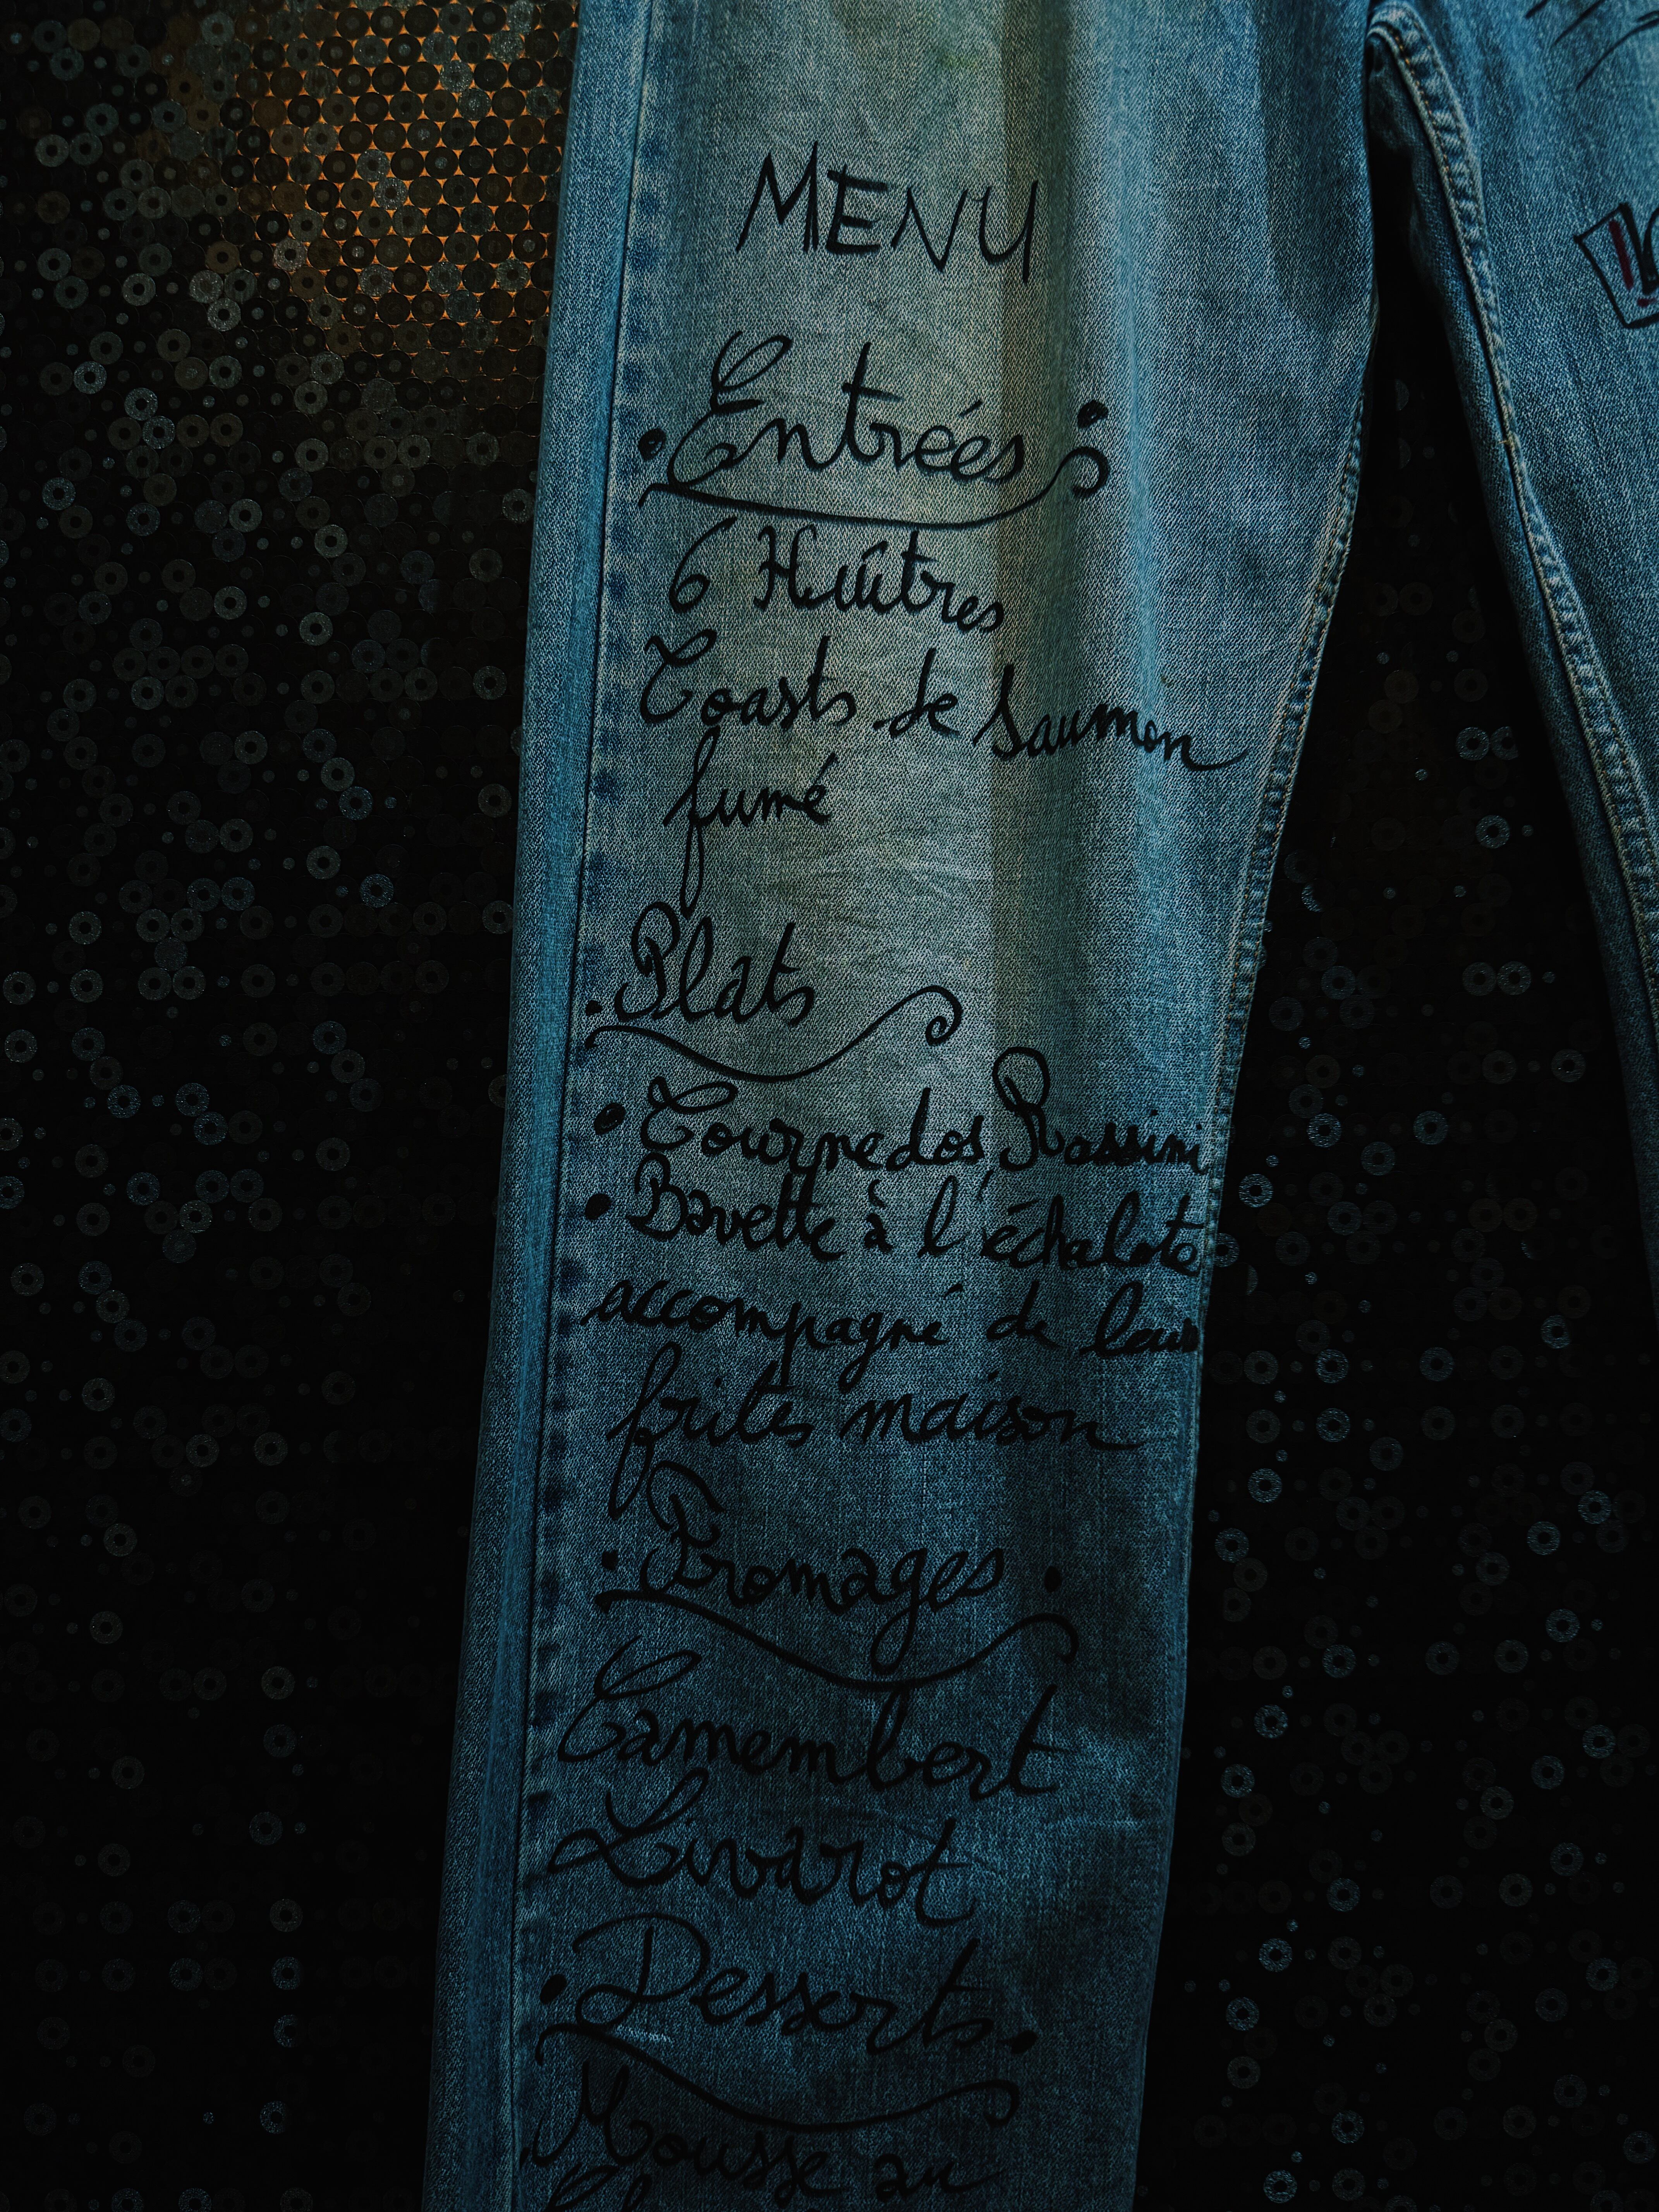 MENU
Entrées
6 Huîtres
Toasts de Saumon
fumé
Plats
Tournedos Rossini
Bavette à l'échalote
accompagné de leur
frites maison
Fromages
Camembert
Livarot
Desserts
Mousse au